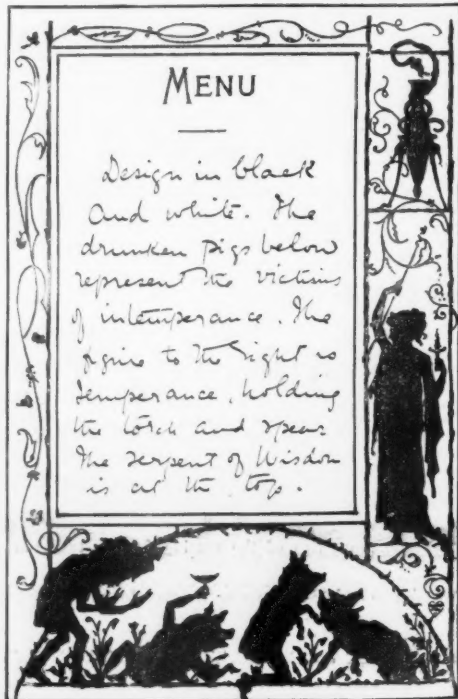 MENU
Design in black
and white. The
drunken pigs below
represent the victims
of intemperance. The
figure to the right is
Temperance, holding
the torch and spear
The serpent of Wisdom
is at the top.